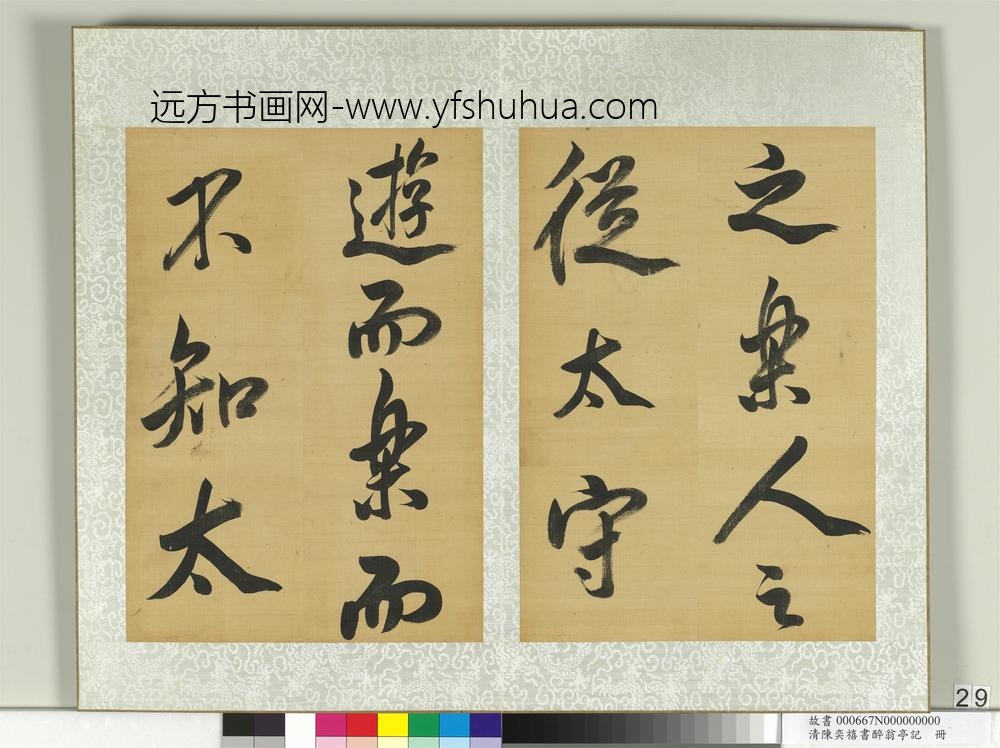 远方书画网-www.yfshuhua.com
之樂人之
從太守
遊而樂而
不知太
29
故書 000667N000000000
清陳奕禧書醉翁亭記 冊